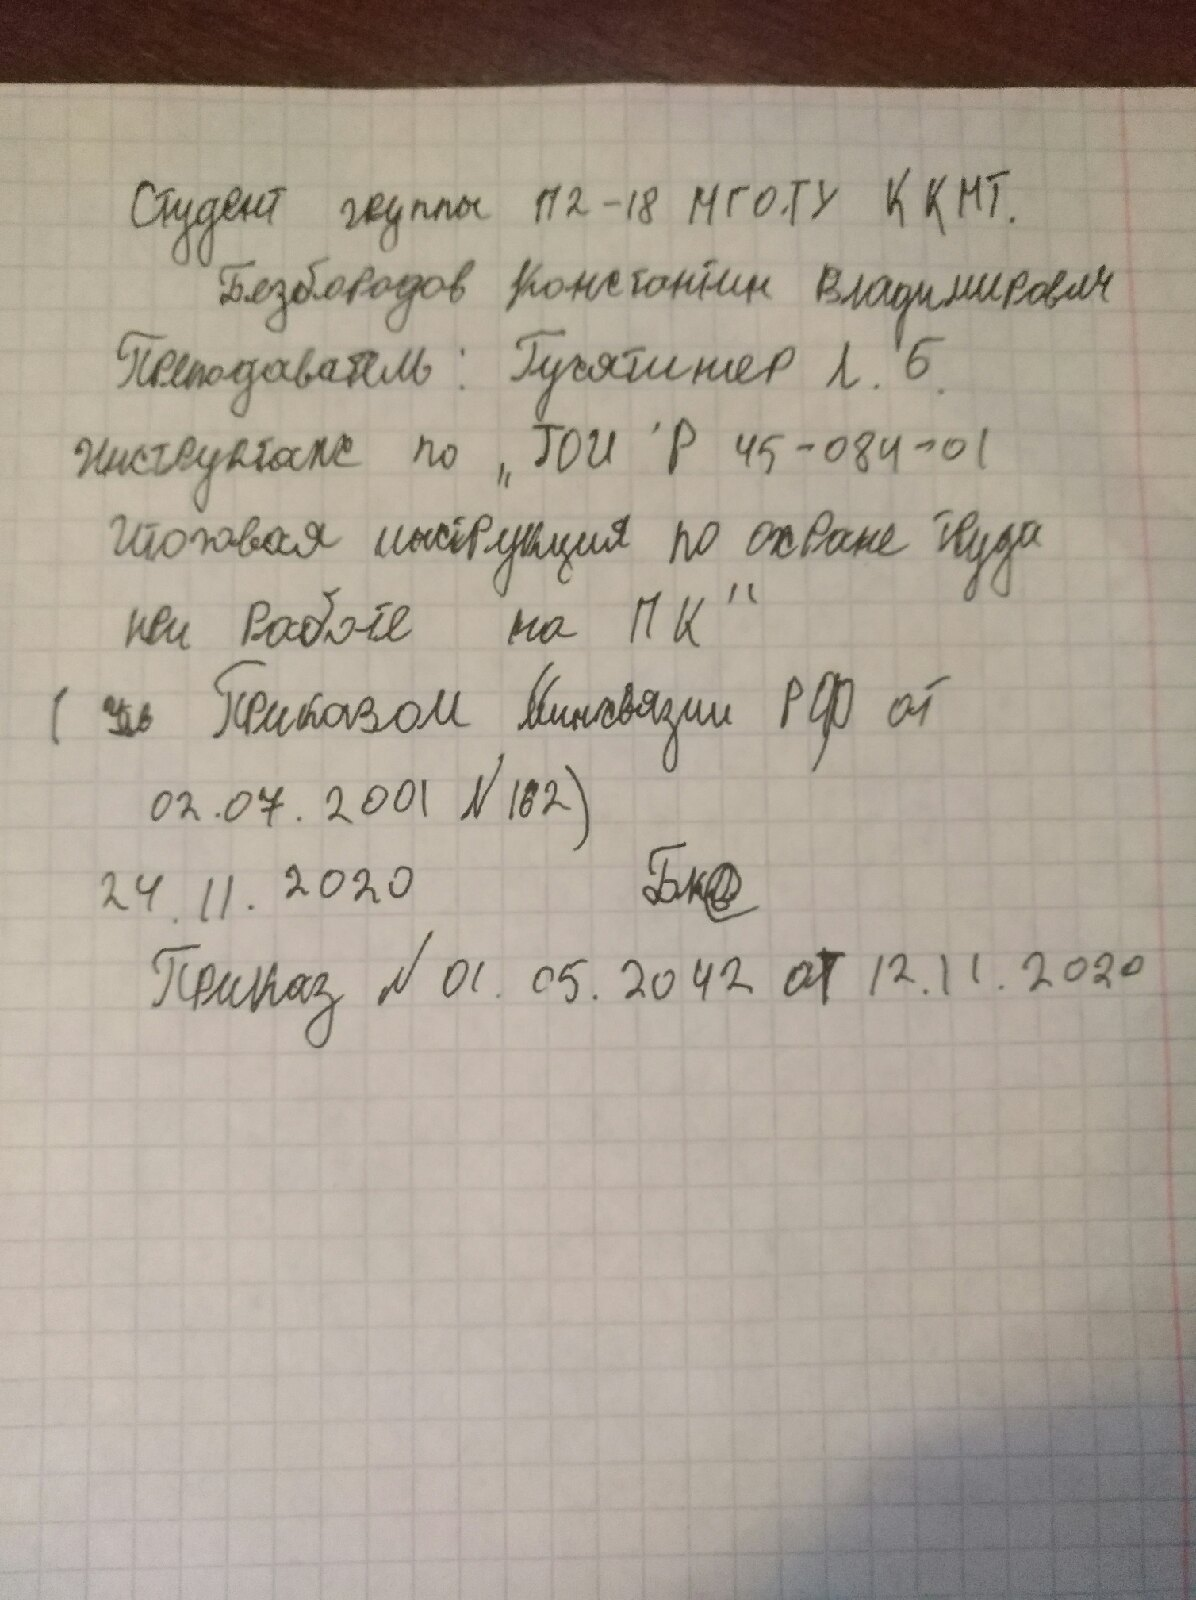 Студент группы П2-18 МГОТУ ККМТ.
Безбородов Константин Владимирович
Преподаватель: Гусятинер Л.Б.
Инструктаж по „ТОИ Р 45-084-01
Итоговая инструкция по охране труда
при работе на ПК"
( Утв Приказом Минсвязии РФ от
02.07.2001 N 162)
24.11.2020 БКВ
Приказ N 01.05.2042 от 12.11.2020